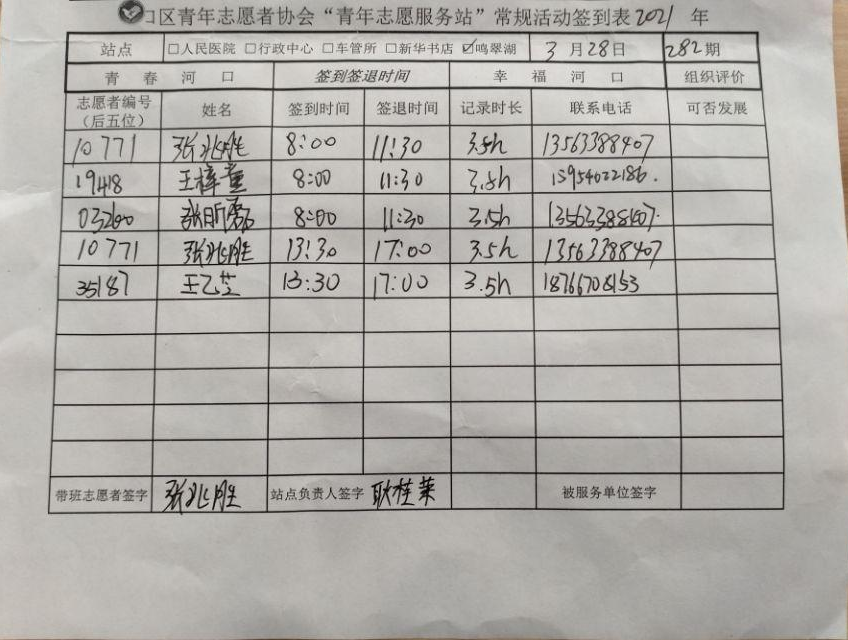 口区青年志愿者协会“青年志愿服务站”常规活动签到表2021年
站点 □人民医院 □行政中心 □车管所 □新华书店 ☑鸣翠湖 3月28日 282期
青春河口 签到签退时间 幸福河口 组织评价
志愿者编号(后五位) 姓名 签到时间 签退时间 记录时长 联系电话 可否发展
10771 张兆胜 8:00 11:30 3.5h 13563388407
19418 王梓童 8:00 11:30 3.5h 15954022186.
03200 张昕 8:00 11:30 3.5h 13563388407.
10771 张兆胜 13:30 17:00 3.5h 13563388407
35187 王乙芝 13:30 17:00 3.5h 18766708153
带班志愿者签字 张兆胜 站点负责人签字 耿桂莱 被服务单位签字